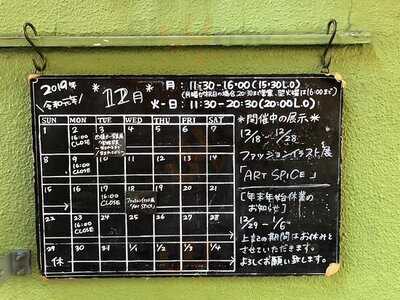 2019年
(令和元年)
*12月*
月:11:30-16:00(15:30L.O)
火-日:11:30-20:30(20:00L.O)
SUN MON TUE WED THU FRI SAT
1 2 3 4 5 6 7
16:00
CLOSE
8 9 10 11 12 13 14
16:00
CLOSE
15 16 17 18 19 20 21
16:00
CLOSE
ファッションイラスト展
「ART SPICE」
22 23 24 25 26 27 28
16:00
CLOSE
29 30 31 1/1 1/2 1/3 1/4
休
*開催中の展示*
12/18~12/28
ファッションイラスト展
「ART SPICE」
[年末年始休業の
お知らせ]
12/29-1/6
上記の期間はお休みと
させていただきます。
よろしくお願い致します。